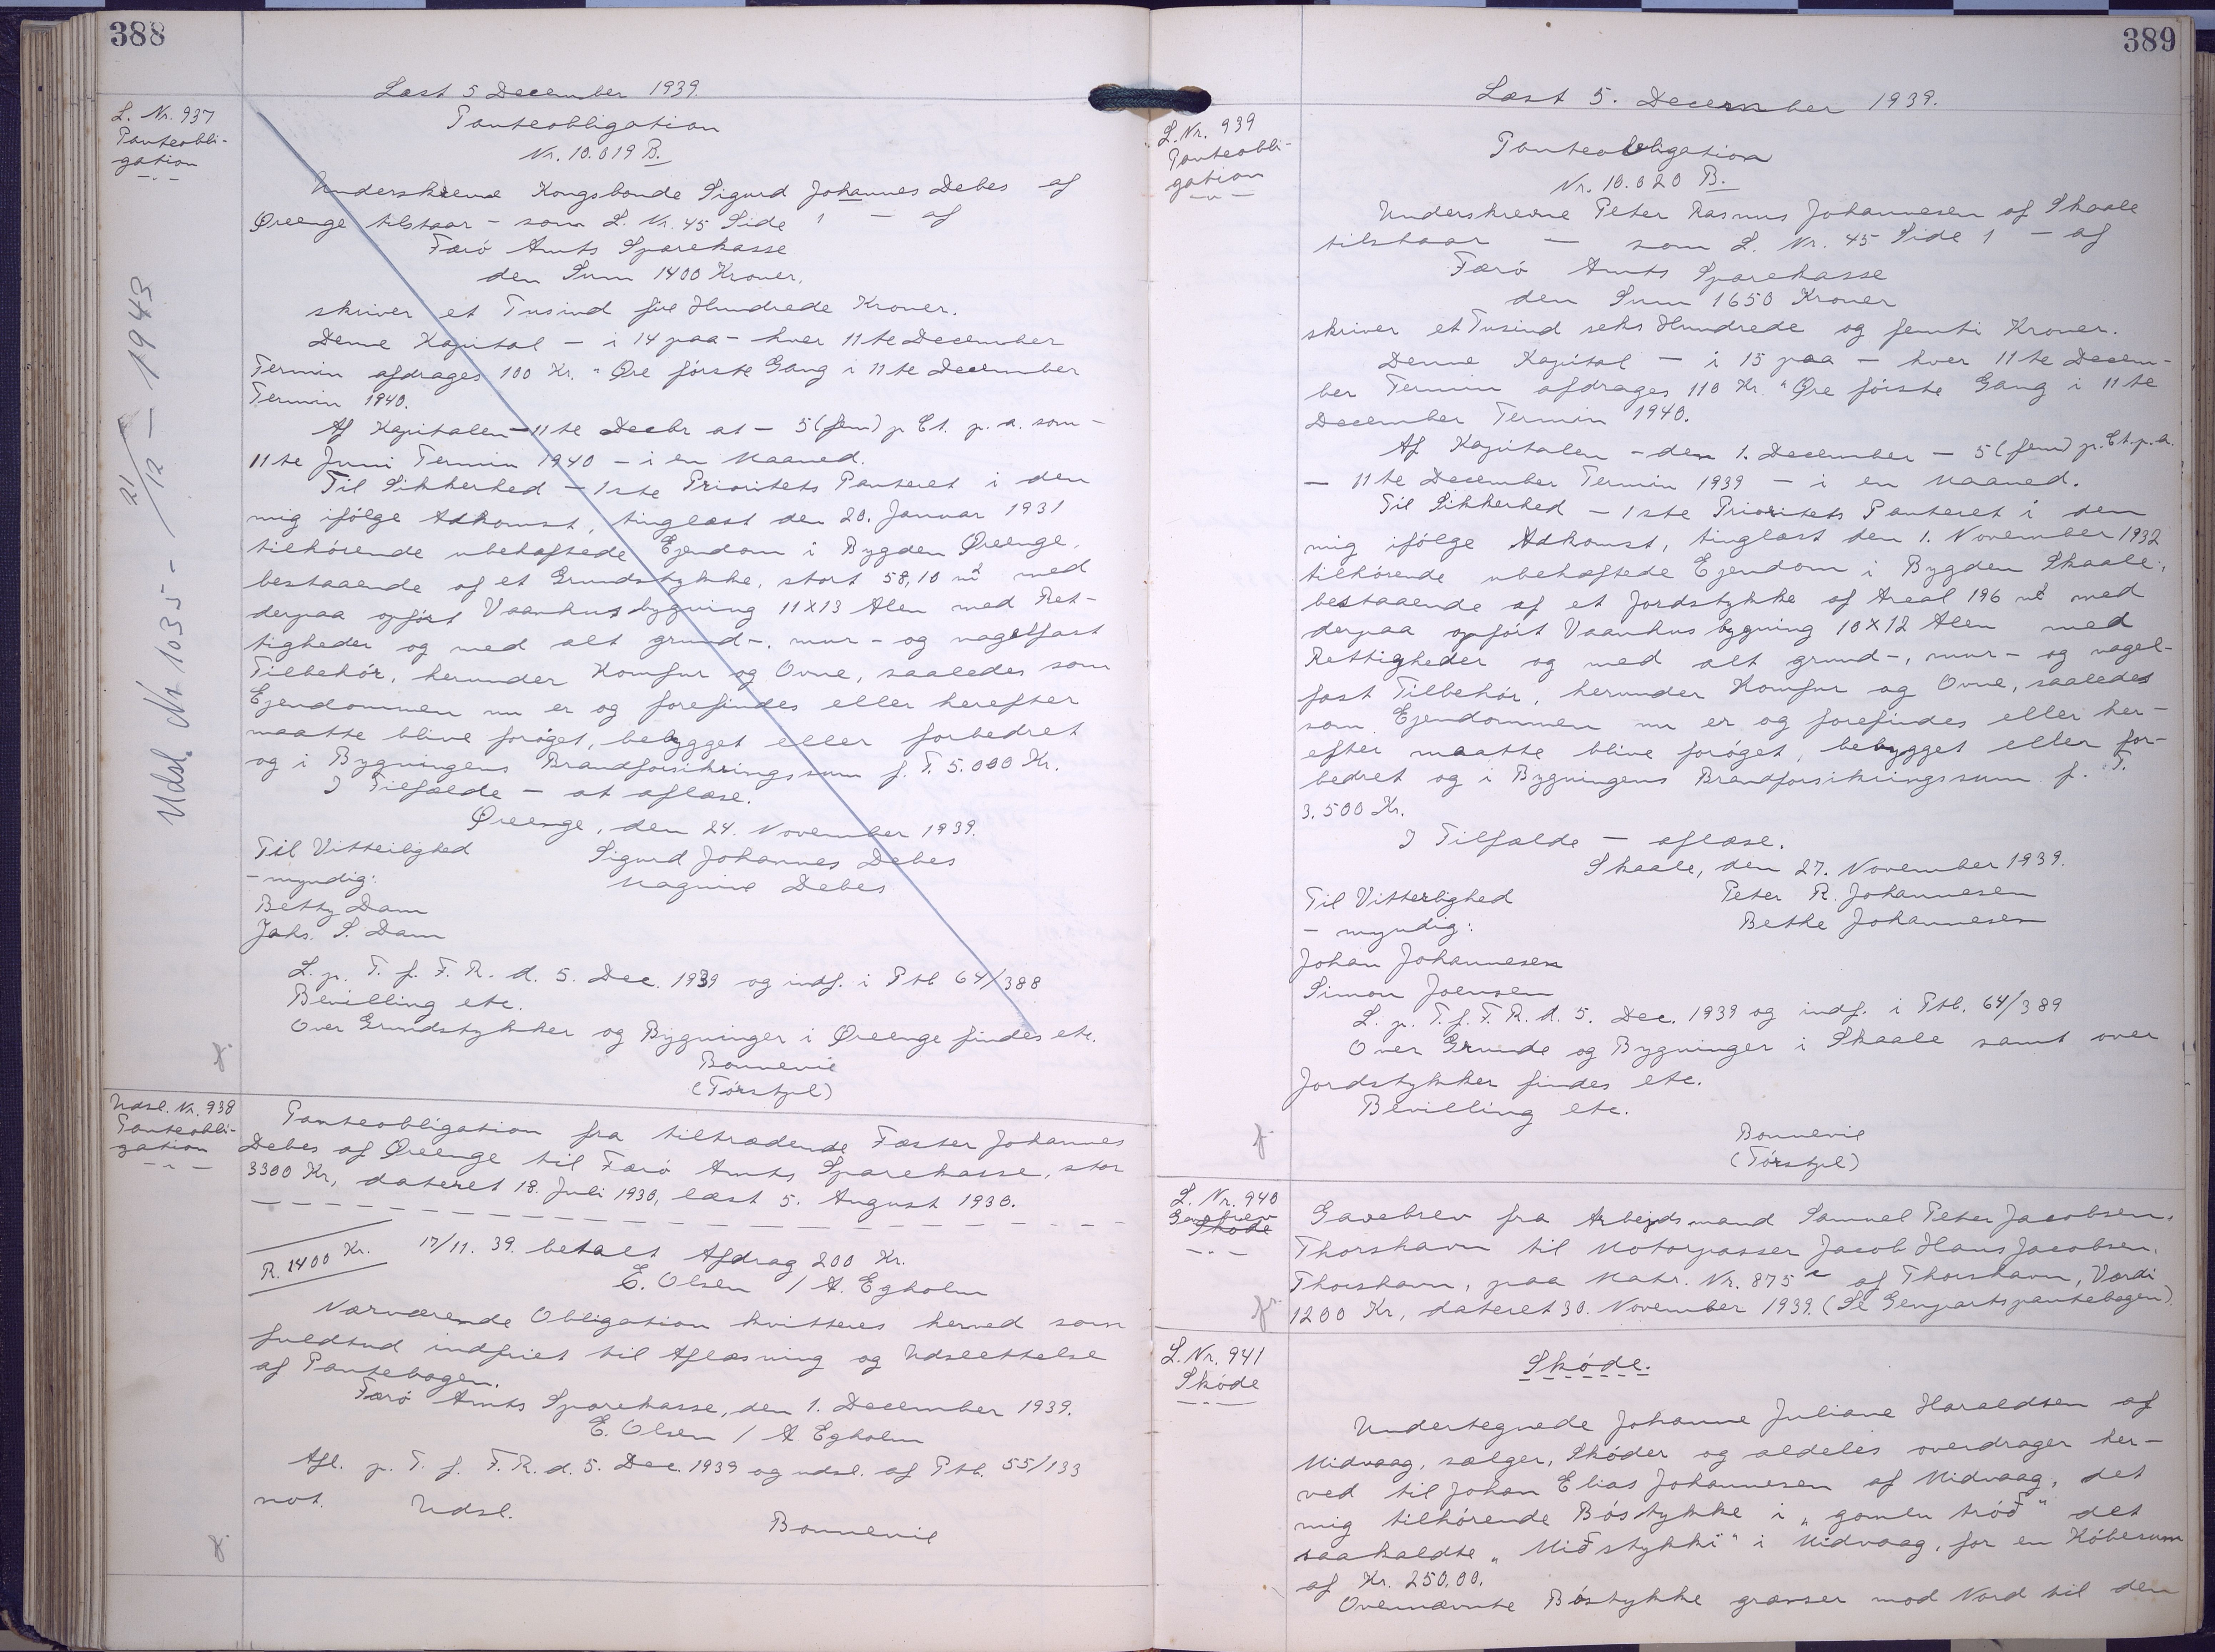 388
Læst 5 December 1939.
L. Nr. 937
Panteobli-
gation
Panteobligation
Nr. 10.019 B.
Underskrevne Kongsbonde Sigurd Johannes Debes af
Øreenge tilstaar - som L. Nr. 45 Side 1 - af
Færø Amts Sparekasse
den Sum 1400 Kroner,
skriver et Tusind fire Hundrede Kroner.
Denne Kapital - i 14 paa - hver 11te December
Termin afdrages 100 Kr. " Øre første Gang i 11te December
Termin 1940.
Af Kapitalen - 11te Decbr at - 5 (fem) p Ct. p. a. som -
11te Juni Termin 1940 - i en Maaned.
Til Sikkerhed - 1ste Prioritets Panteret i den
mig ifølge Adkomst, tinglæst den 20. Januar 1931
tilhørende ubehæftede Ejendom i Bygden Øreenge,
bestaaende af et Grundstykke, stort 58,10 m² med
derpaa opført Vaanhusbygning 11 x 13 Alen med Ret-
tigheder og med alt grund-, mur- og nagelfast
Tilbehør, herunder Komfur og Ovne, saaledes som
Ejendommen nu er og forefindes eller herefter
maatte blive forøget, bebygget eller forbedret
og i Bygningens Brandforsikringssum f. T. 5.000 Kr.
I Tilfælde - at aflæse.
Øreenge, den 24. November 1939.
Til Vitterlighed Sigurd Johannes Debes
- myndig: Magnine Debes
Betty Dam
Jahs. S. Dam
L. p. T. f. F. R. d. 5. Dec. 1939 og indf. i Ptb 64/388
Bevilling etc.
Over Grundstykker og Bygninger i Øreenge findes etc.
Bonnevie
(Tórstjl)
Udsl. Nr 1035 - 21/12 - 1943
Udsl. Nr. 938
Panteobli-
gation
Panteobligation fra tiltrædende Fæster Johannes
Debes af Øreenge til Færø Amts Sparekasse, stor
3300 Kr, dateret 18. Juli 1930, læst 5. August 1930.
R. 1400 Kr. 17/11. 39. betalt Afdrag 200 Kr.
E. Olsen / A. Egholm
Nærværende Obligation kvitteres herved som
fuldtud indfriet til Aflæsning og Udslettelse
af Pantebogen.
Færø Amts Sparekasse, den 1. December 1939.
E. Olsen / A Egholm
Afl. p. T. f. F. R. d. 5. Dec. 1939 og udsl. af Ptb. 55/133
not. Udsl.
Bonnevie
389
Læst 5. December 1939.
L. Nr. 939
Panteobli-
gation
Panteobligation
Nr. 10.020 B.
Underskrevne Peter Rasmus Johannesen af Skaale
tilstaar - som L. Nr. 45 Side 1 - af
Færø Amts Sparekasse
den Sum 1650 Kroner
skriver et Tusind seks Hundrede og femti Kroner.
Denne Kapital - i 15 paa - hver 11te Decem-
ber Termin afdrages 110 Kr. " Øre første Gang i 11te
December Termin 1940.
Af Kapitalen - den 1. December - 5 (fem) p. Ct. p. a.
- 11te December Termin 1939 - i en Maaned.
Til Sikkerhed - 1ste Prioritets Panteret i den
mig ifølge Adkomst, tinglæst den 1. November 1932
tilhørende ubehæftede Ejendom i Bygden Skaale,
bestaaende af et Jordstykke af Areal 196 m² med
derpaa opført Vaanhusbygning 10 x 12 Alen med
Rettigheder og med alt grund-, mur- og nagel-
fast Tilbehør, herunder Komfur og Ovne, saaledes
som Ejendommen nu er og forefindes eller her-
efter maatte blive forøget, bebygget eller for-
bedret og i Bygningens Brandforsikringssum f. T.
3.500 Kr.
I Tilfælde - aflæse.
Skaale, den 27. November 1939.
Til Vitterlighed Peter R. Johannesen
- myndig: Bethe Johannesen
Johan Johannesen
Simon Joensen
L. p. T. f. F. R. d. 5. Dec. 1939 og indf. i Ptb. 64/389
Over Grunde og Bygninger i Skaale samt over
Jordstykker findes etc.
Bevilling etc.
Bonnevie
(Tórstjl)
L. Nr. 940
Gavebrev
Skøde
Gavebrev fra Arbejdsmand Samuel Peter Jacobsen,
Thorshavn til Motorpasser Jacob Hans Jacobsen,
Thorshavn, paa Matr. Nr. 875 c af Thorshavn, Værdi
1200 Kr, dateret 30. November 1939. (Se Genpartspantebogen).
L. Nr. 941
Skøde
Skøde.
Undertegnede Johanne Juliane Haraldsen af
Midvaag, sælger, Skøder og aldeles overdrager her-
ved til Johan Elias Johannesen af Midvaag, det
mig tilhørende Bøstykke i "gomlu trøð" det
saakaldte "Miðstykki" i Midvaag, for en Købesum
af Kr. 250,00.
Ovennævnte Bøstykke grænser mod Nord til den